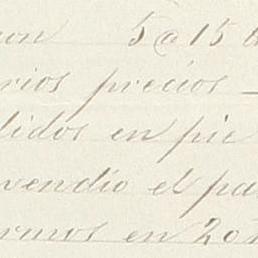 on 5@15
rios precios
lidos en pie
vendio el pa
rmos en 20